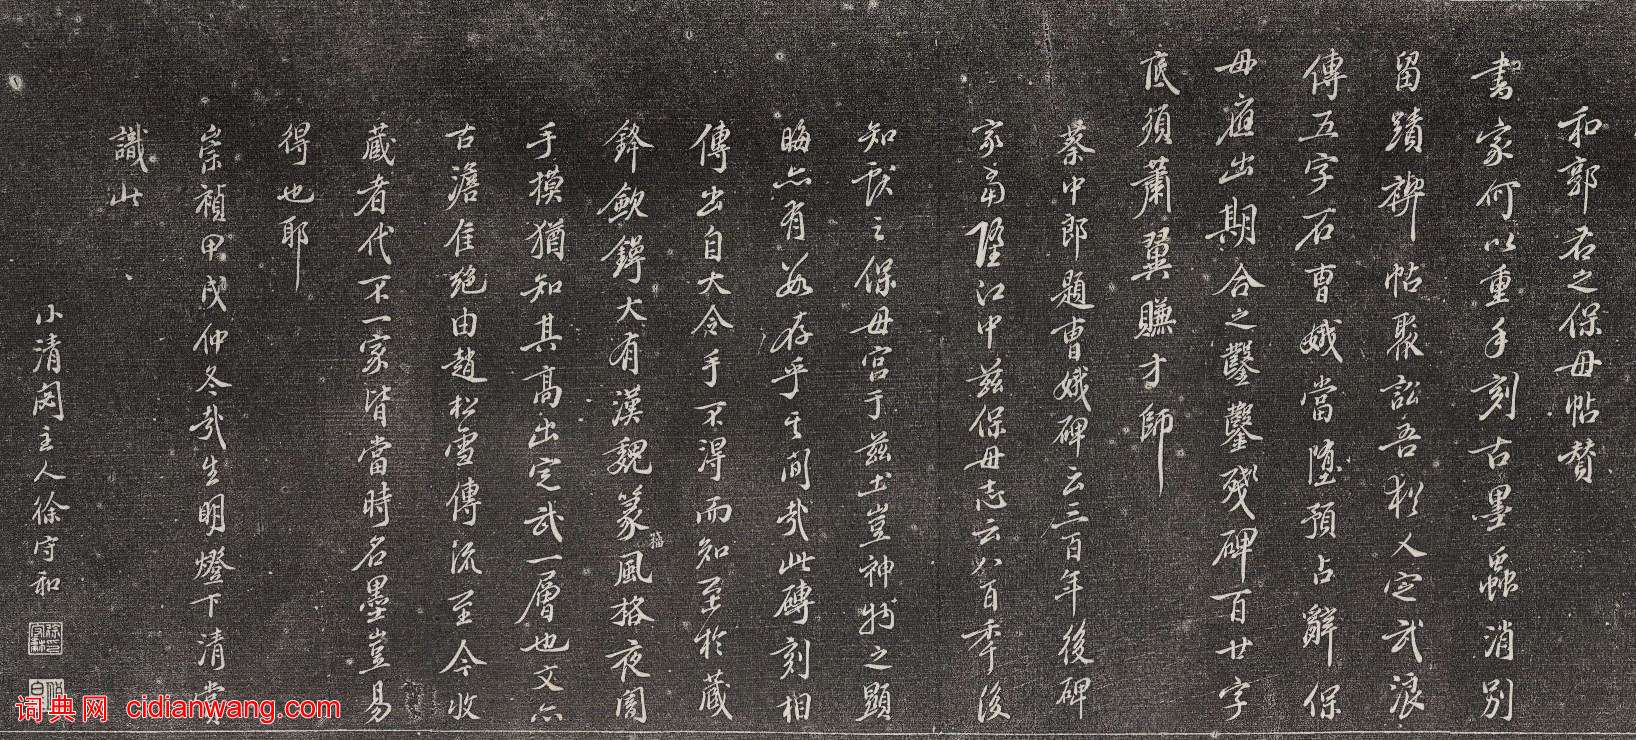 和郭右之保母帖贊
書家何以重手刻古墨蟲消別
留蹟禊帖聚訟吾非又定武浪
傳五字石曹娥當墮預占辭保
母應出期合之鑿鑿殘碑百廿字
底須蕭翼賺才師
蔡中郎題曹娥碑云三百年後碑
家當墮江中茲保母志云八百季後
知獻之保母宫于茲土豈神物之顯
晦亦有數存乎其間哉此磚刻相
傳出自大令手不得而知至於藏
鋒斂鍔大有漢魏篆風格夜闌
手摸猶知其高出定武一層也文亦
古澹隹絶由趙松雪傳流至今收
藏者代不一家皆當時名墨豈易
得也耶
崇禎甲戌仲冬哉生明燈下清賞
識此
小清閟主人徐守和
词典网 cidianwang.com